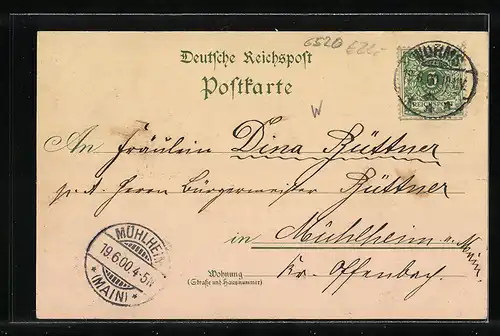 6520
Deutsche Reichspost
Postkarte
WORMS
5
REICHSPOST
W
An Fräulein Dina Büttner
p. A. Herrn Bürgermeister Büttner
in Mühlheim a. Main
Kr. Offenbach.
MÜHLHEIM
19.6.00. 4-5N
* (MAIN) *
Wohnung
(Straße und Hausnummer)